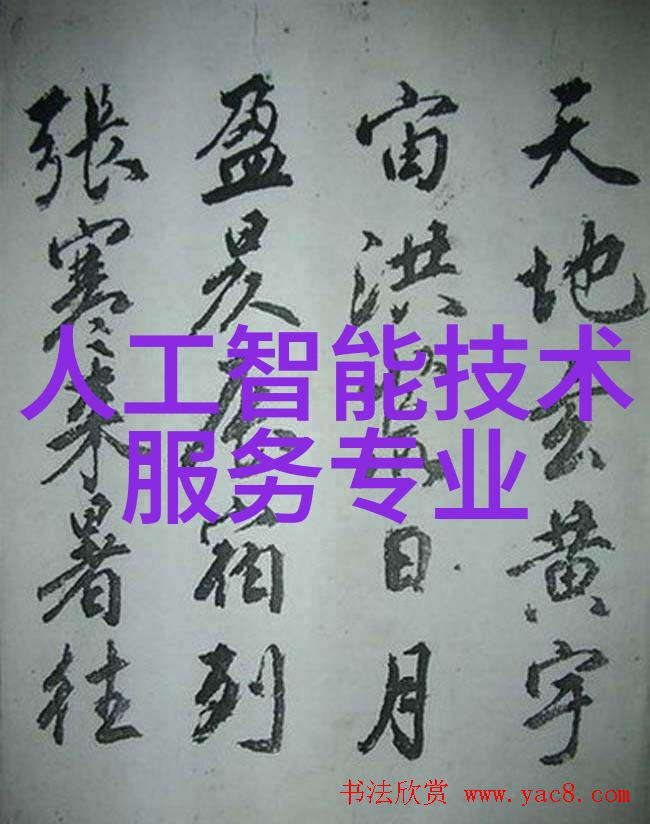 天地玄黄宇
宙洪荒日月
盈昃辰宿列
張寒来暑往
人工智能技术
服务专业
书法欣赏 www.yac8.com